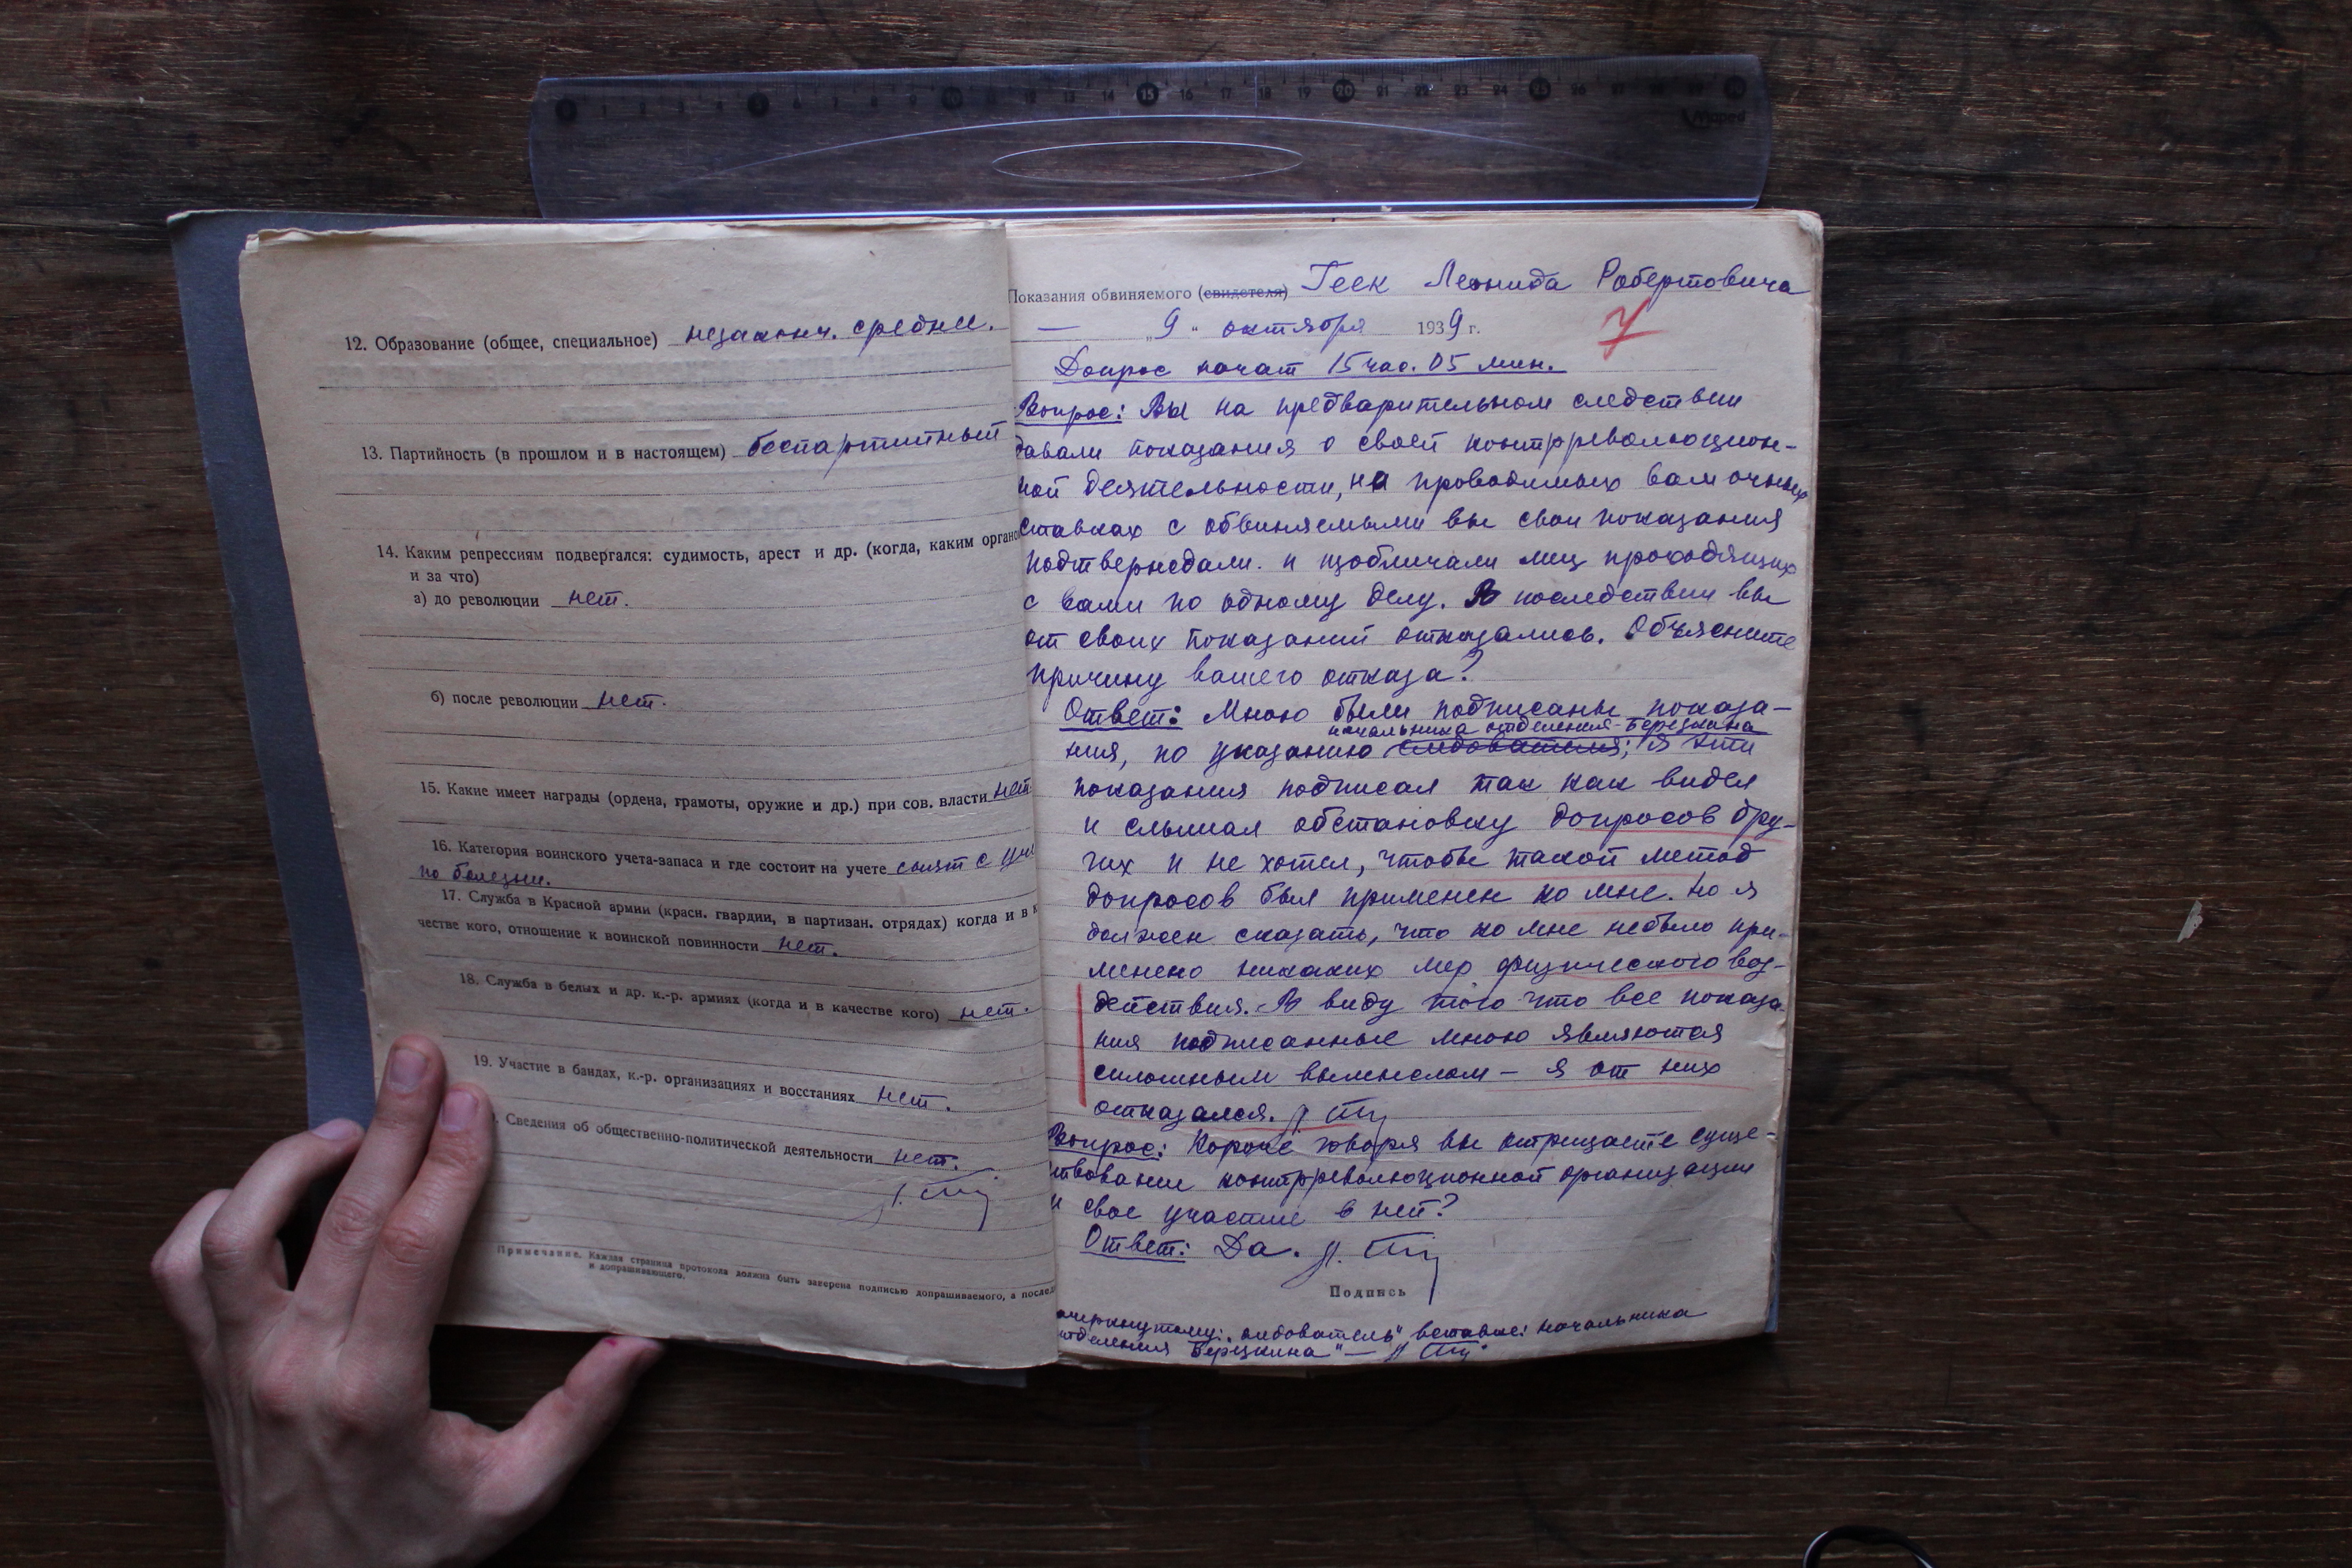 12. Образование (общее, специальное) незаконч. среднее.
13. Партийность (в прошлом и в настоящем) беспартийный
14. Каким репрессиям подвергался: судимость, арест и др. (когда, каким органо
и за что)
а) до революции нет.
б) после революции нет.
15. Какие имеет награды (ордена, грамоты, оружие и др.) при сов. власти нет
16. Категория воинского учета-запаса и где состоит на учете снят с уч
по болезни.
17. Служба в Красной армии (красн. гвардии, в партизан. отрядах) когда и в к
честве кого, отношение к воинской повинности нет.
18. Служба в белых и др. к.-р. армиях (когда и в качестве кого) нет.
19. Участие в бандах, к.-р. организациях и восстаниях нет.
Сведения об общественно-политической деятельности нет.
Примечание. Каждая страница протокола должна быть заверена подписью допрашиваемого, а послед
и допрашивающего.
Показания обвиняемого (свидетеля) Геек Леонида Робертовича
— „9" октября 1939 г.
7
Допрос начат 15 час. 05 мин.
Вопрос: Вы на предварительном следствии
давали показания о своей контрреволюцион-
ной деятельности, на проводимых вам очных
ставках с обвиняемыми вы свои показания
подтверждали. и изобличали лиц проходящих
с вами по одному делу. В последствии вы
от своих показаний отказались. Объясните
причину вашего отказа?
Ответ: Мною были подписаны показа-
начальника отделения Березкина
ния, по указанию следователя; я эти
показания подписал так как видел
и слышал обстановку допросов дру-
гих и не хотел, чтобы такой метод
допросов был применен ко мне. Но я
должен сказать, что ко мне небыло при-
менено никаких мер физического воз-
действия. В виду того что все показа-
ния подписанные мною являются
сплошным вымыслом — я от них
отказался.
Вопрос: Короче говоря вы отрицаете суще-
ствование контрреволюционной организации
и свое участие в ней?
Ответ: Да.
Подпись
начальника
отделения Березкина" —